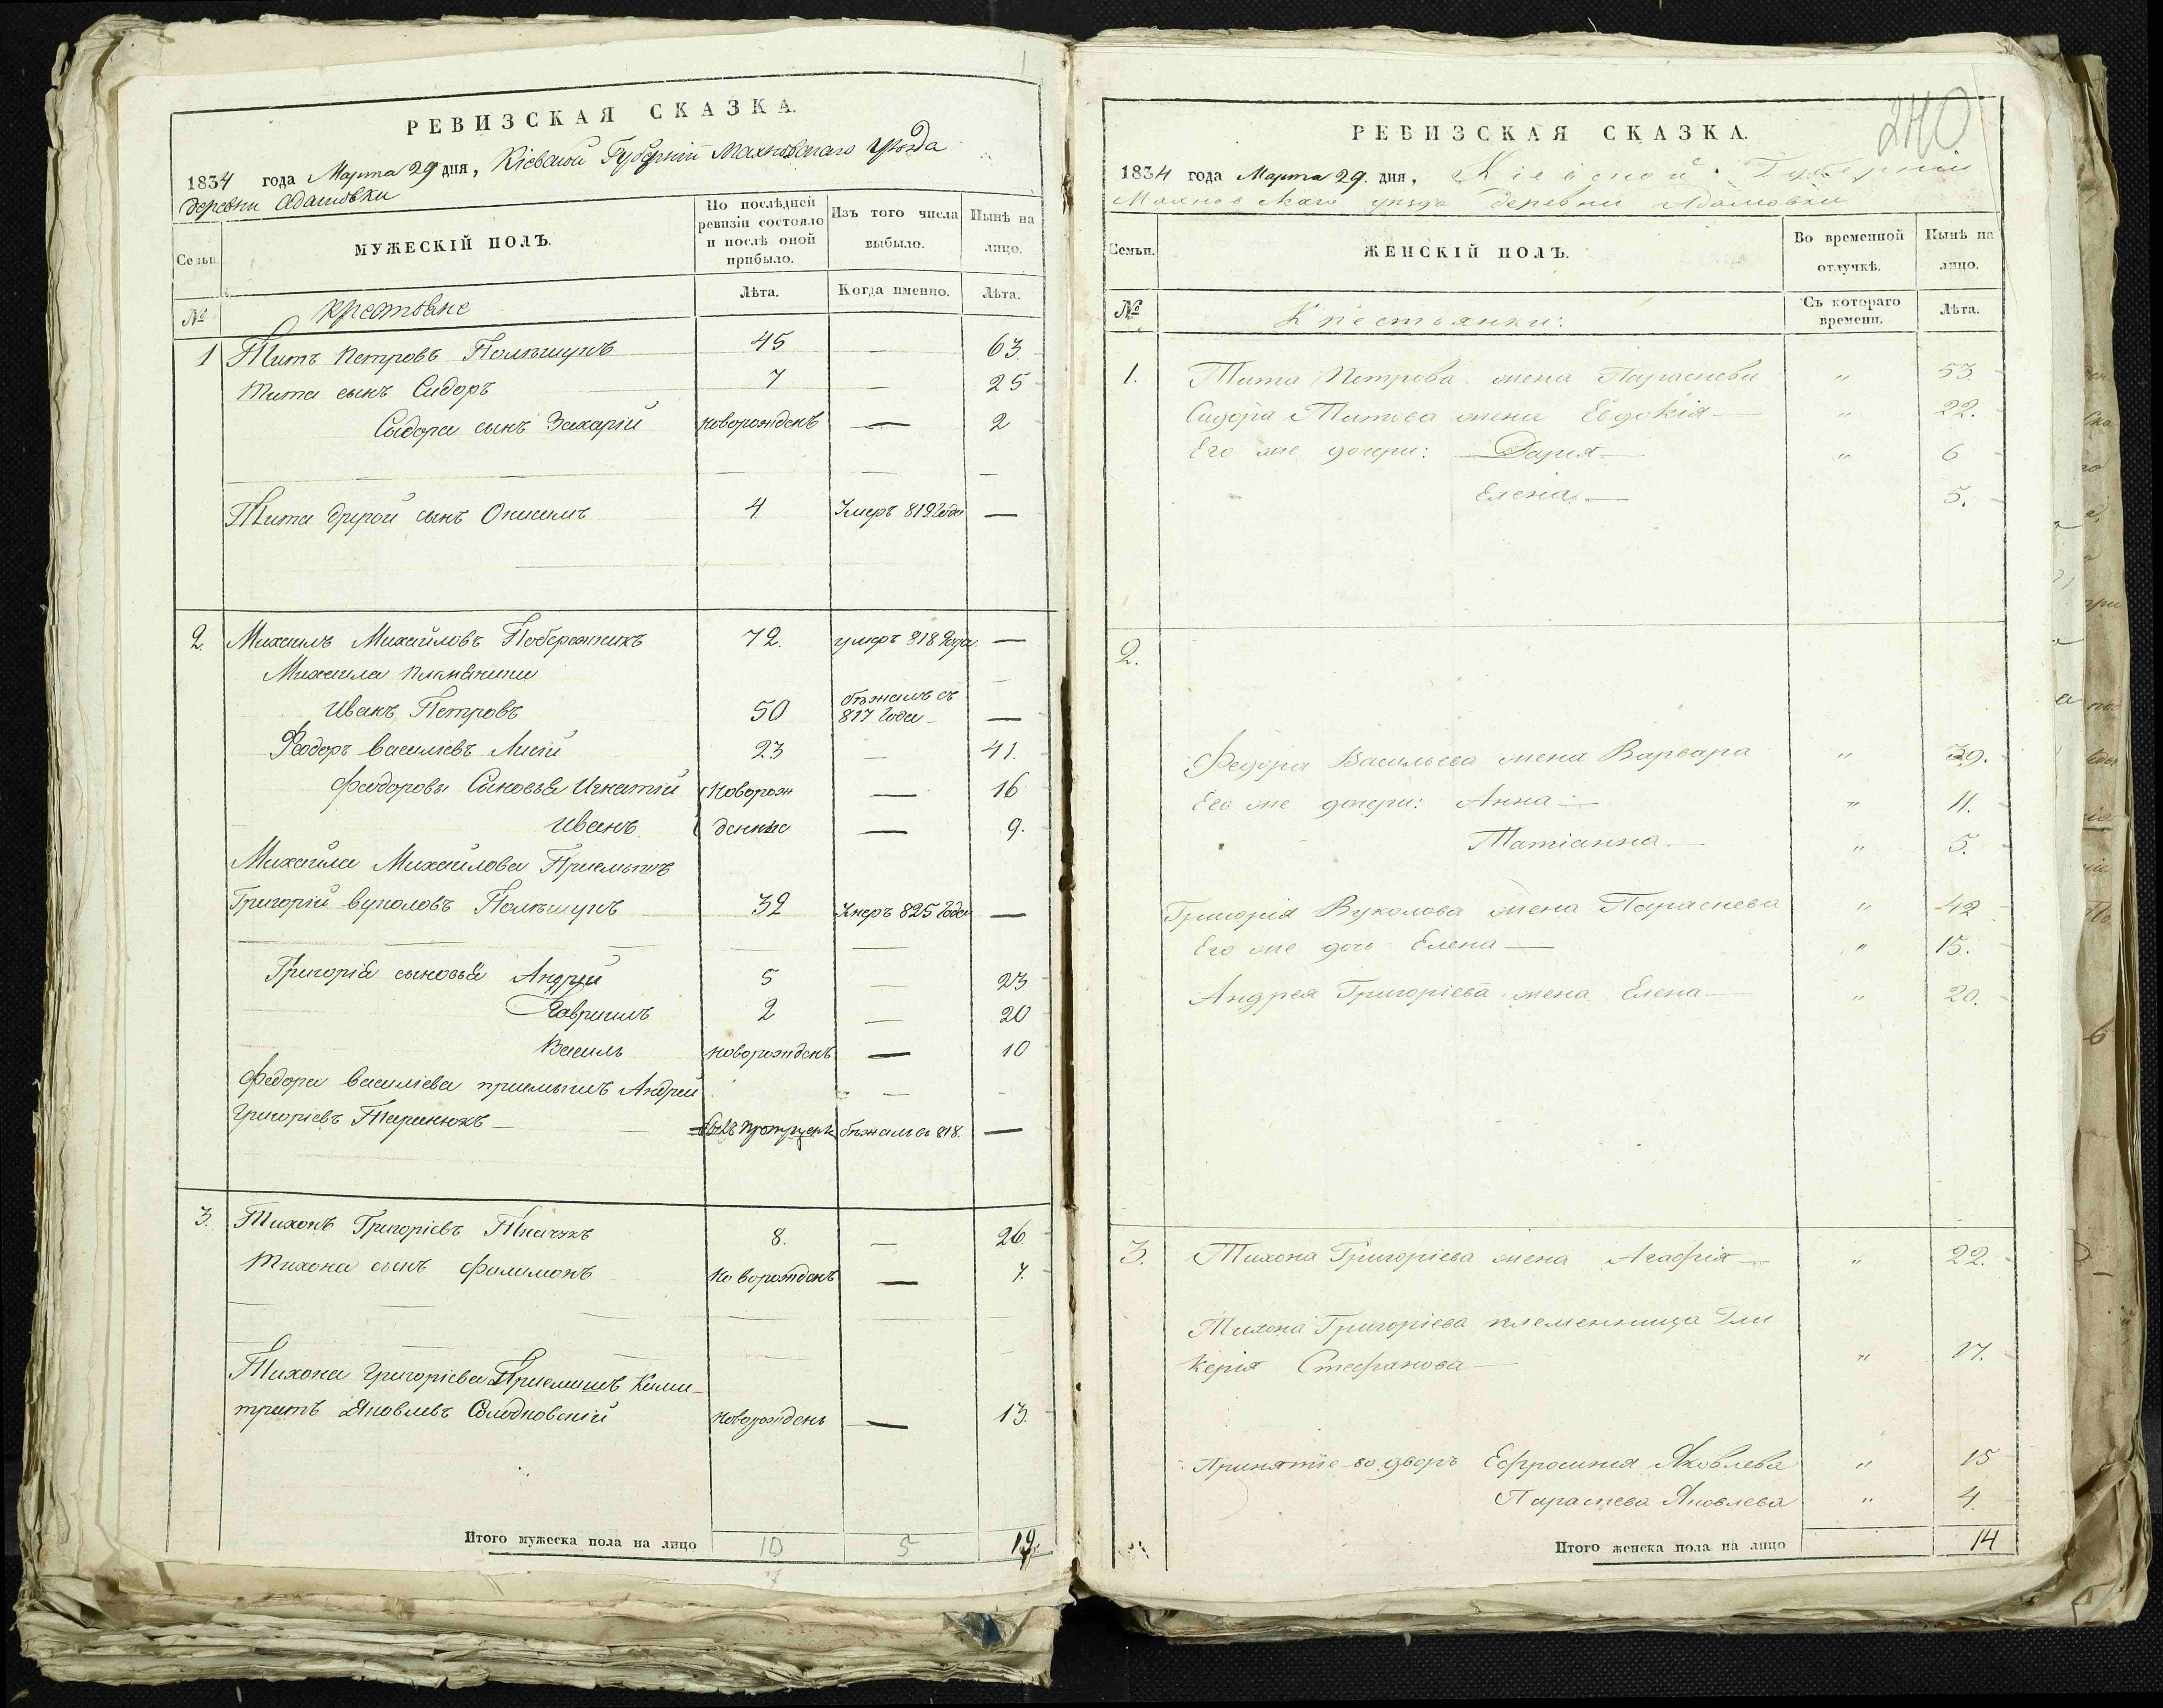 РЕВИЗСКАЯ СКАЗКА.
1834 года Марта 29 дня, Кіевской Губерніи Махновскаго уѣзда
деревни Адамовки
Семьи. МУЖЕСКІЙ ПОЛЪ. По послѣдней ревизіи состояло и послѣ оной прибыло. Изъ того числа выбыло. Нынѣ на лицо.
№ крестьяне Лѣта. Когда именно. Лѣта.
1 Титъ Петровъ Полѣщукъ 45 — 63.
Тита сынъ Сидоръ 7 — 25
Сидора сынъ Захарій новорожденъ — 2
Тита другой сынъ Онисимъ 4. Умеръ 819 Года —
2. Михаилъ Михайловъ Побережникъ 72. умеръ 818 Года —
Михаила племяники
Иванъ Петровъ 50 бѣжалъ съ 817 Года —
Феодоръ Василіевъ Лисій 23 — 41.
Феодоровы Сыновья Игнатій новорож 16
Иванъ денные — 9.
Михайла Михайлова Приемышъ
Григорій Вуколовъ Полѣщукъ 32 Умеръ 825 Года —
Григорія сыновья Андрей 5 — 23
Гавриилъ 2 — 20
Василь новорожденъ — 10
Федора Василіева приемышъ Андрей
Григоріевъ Таранюкъ — бѣжалъ въ 818. —
3. Тихонъ Григоріевъ Ткачукъ 8. — 26
Тихона сынъ Филимонъ новорожденъ — 7.
Тихона Григоріева Приемышъ Кали-
тратъ Яковлевъ Солодковскій новорожденъ — 13.
Итого мужеска пола на лицо 10 5 12.
7
240
РЕВИЗСКАЯ СКАЗКА.
1834 года Марта 29. дня, Кіевской Губерніи
Махновскаго уѣзда деревни Адамовки
Семьи. ЖЕНСКІЙ ПОЛЪ. Во временной отлучкѣ. Нынѣ на лицо.
№ Крестьянки: Съ котораго времени. Лѣта.
1. Тита Петрова жена Параскева " 53.
Сидора Титова жена Евдокія — " 22.
Его же дочери: Дарія — " 6
Елена — 5.
2.
Федора Васильева жена Варвара " 39.
Его же дочери: Анна — " 11.
Татіанна — " 5.
Григорія Вуколова жена Параскева " 42
Его же дочь Елена — " 15.
Андрея Григоріева жена Елена — " 20.
3. Тихона Григоріева жена Агафія — " 22.
Тихона Григоріева племенница Гли
керія Стефанова — " 17.
Принятіе во дворъ Ефросинія Яковлева " 15
Параскева Яковлева " 4.
Итого женска пола на лицо 14